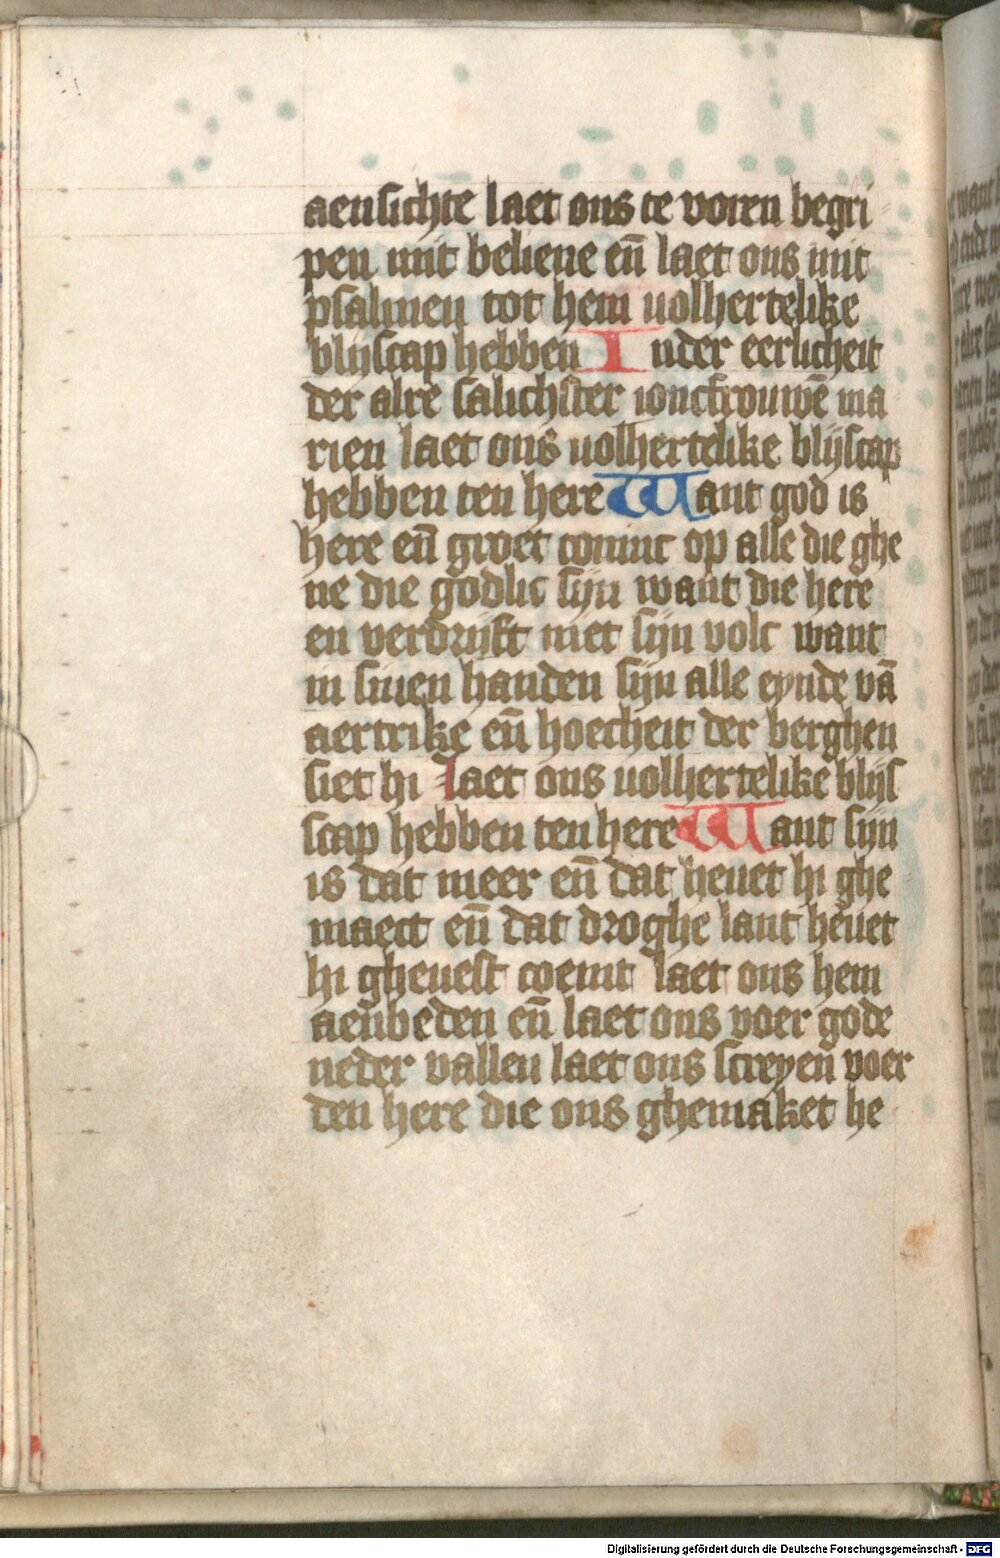 aensichte laet ons te voren begri
pen mit beliene en̄ laet ons mit
psalmen tot hem uolhertelike
blijscap hebben Inder eerlicheit
der alre salichster ioncfrouwē ma
rien laet ons uolhertelike blijscap
hebben ten here Want god is
here en̄ groet coninc op alle die ghe
ne die godlic sijn want die here
en verdrijft niet sijn volc want
in sinen handen sijn alle eynde vā
aertrike en̄ hoecheit der berghen
siet hi laet ons uolhertelike blijs
scap hebben ten here Want sijn
is dat meer en̄ dat heuet hi ghe
maect en̄ dat droghe lant heuet
hi gheuest coemt laet ons hem
aenbeden en̄ laet ons voer gode
neder vallen laet ons screyen voer
den here die ons ghemaket he
Digitalisierung gefördert durch die Deutsche Forschungsgemeinschaft - DFG